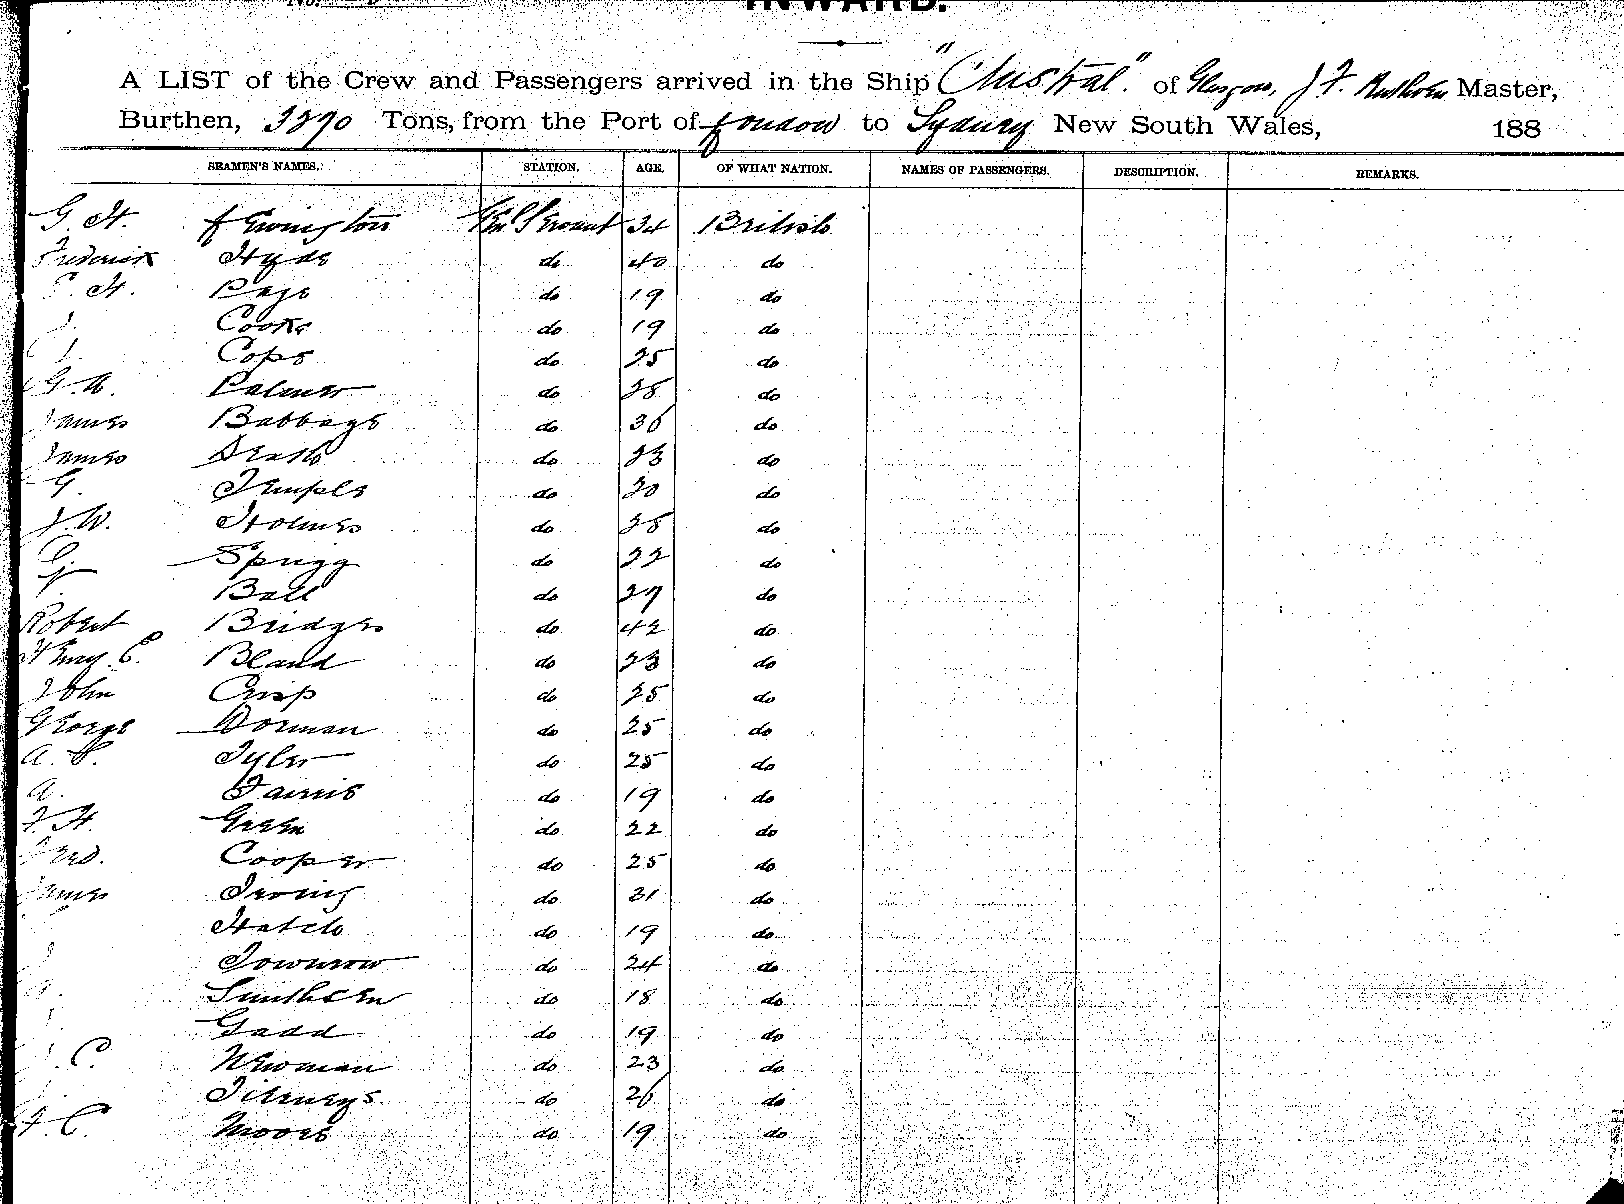 INWARD.
A LIST of the Crew and Passengers arrived in the Ship "Austral" of Glasgow, J F. Ruthven Master,
Burthen, 3270 Tons, from the Port of London to Sydney New South Wales, 188
SEAMEN'S NAMES. STATION. AGE. OF WHAT NATION. NAMES OF PASSENGERS. DESCRIPTION. REMARKS.
G. H. Servant 34 British
Frederick Hyde do 40 do
H. Page do 19 do
J. Cooke do 19 do
Cope do 25 do
G. W. Palmer do 28 do
James Babbage do 36 do
James Death do 23 do
G. Temple do 20 do
J. W. Holmes do 28 do
G. Sprigg do 22 do
Ball do 27 do
Robert Bridges do 42 do
Henry C. Bland do 23 do
John Crisp do 25 do
George Dorman do 25 do
A. S. Tyler do 25 do
A. do 19 do
F. H. Green do 22 do
Fred. Cooper do 25 do
James Irving do 31 do
Hatch do 19 do
Townrow do 24 do
do 18 do
Gadd do 19 do
C. Newman do 23 do
do 26 do
F. C. Moore do 19 do